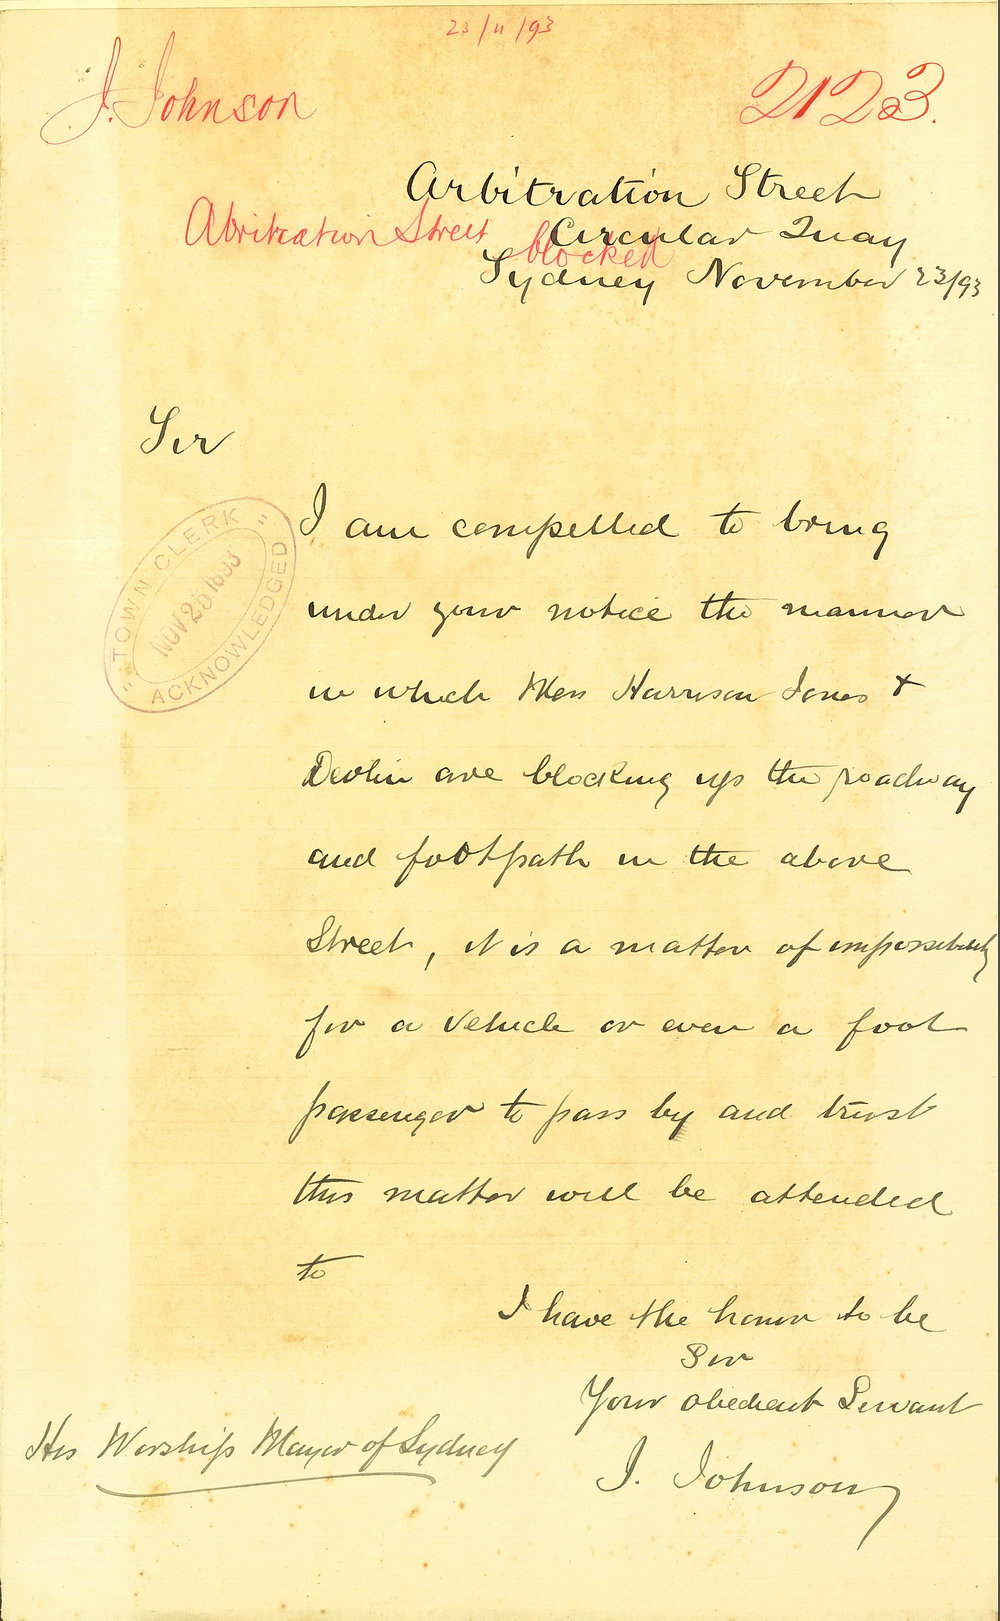 23/11/93
J. Johnson
2123.
Arbitration Street
Abritration Street blocked
Circular Quay
Sydney November 23/93
Sir
"TOWN CLERK"
NOV 25 1893
ACKNOWLEDGED
I am compelled to bring
under your notice the manner
in which Mess Harrison Jones &
Devlin are blocking up the roadway
and footpath in the above
Street, it is a matter of impossibility
for a vehicle or even a foot
passenger to pass by and trust
this matter will be attended
to
I have the honor to be
Sir
Your obedient Servant
His Worship Mayor of Sydney
J. Johnson